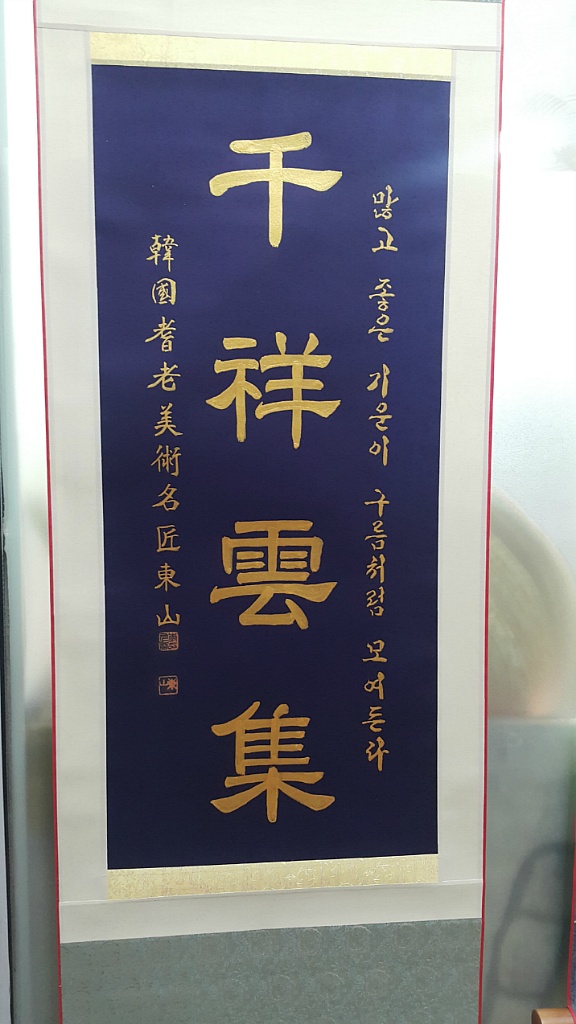 맑고 좋은 기운이 구름처럼 모여든다
千祥雲集
韓國耆老美術名匠東山